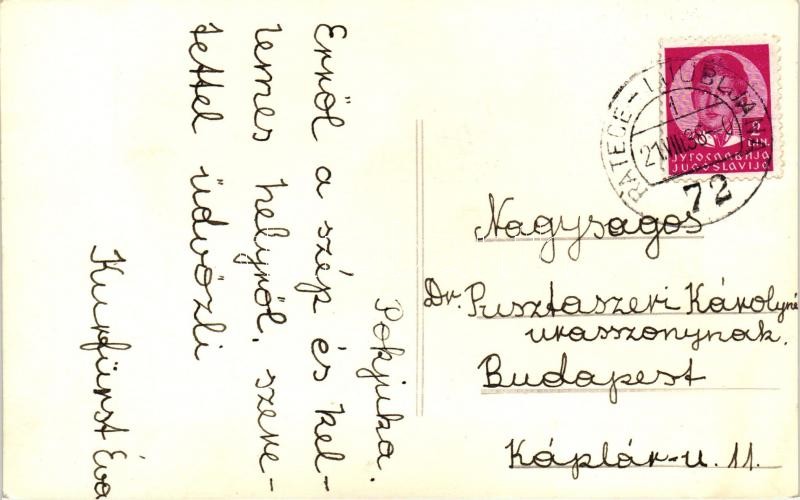 Pokljuka.
Erről a szép és kel-
lemes helyről, szere-
tettel üdvözli
Kurfürst Éva
RATEČE - LJUBLJANA
1
21.VIII.36
72
2
DIN.
ЈУГОСЛАВИЈА
JUGOSLAVIJA
Nagysagos
Dr. Pusztaszeri Károlyné
urasszonynak.
Budapest
Káplár-u. 11.